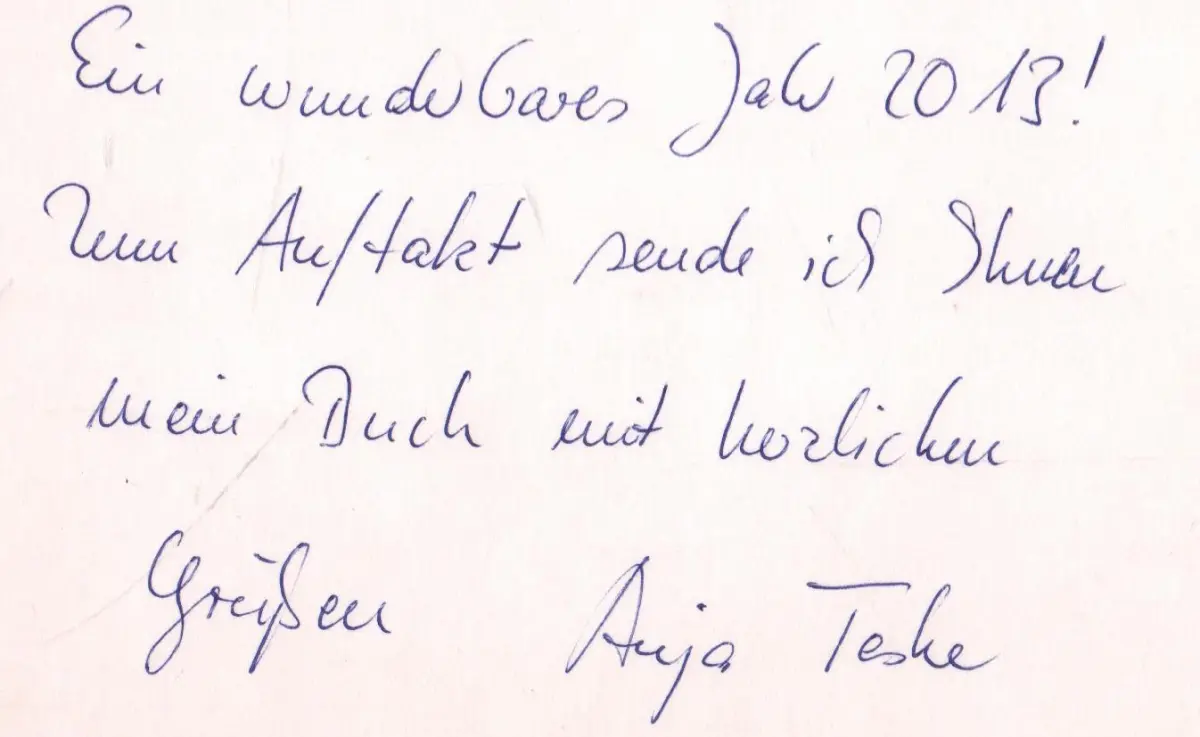 Ein wunderbares Jahr 2013!
Zum Auftakt sende ich Ihnen
mein Buch mit herzlichen
Grüßen Anja Teske